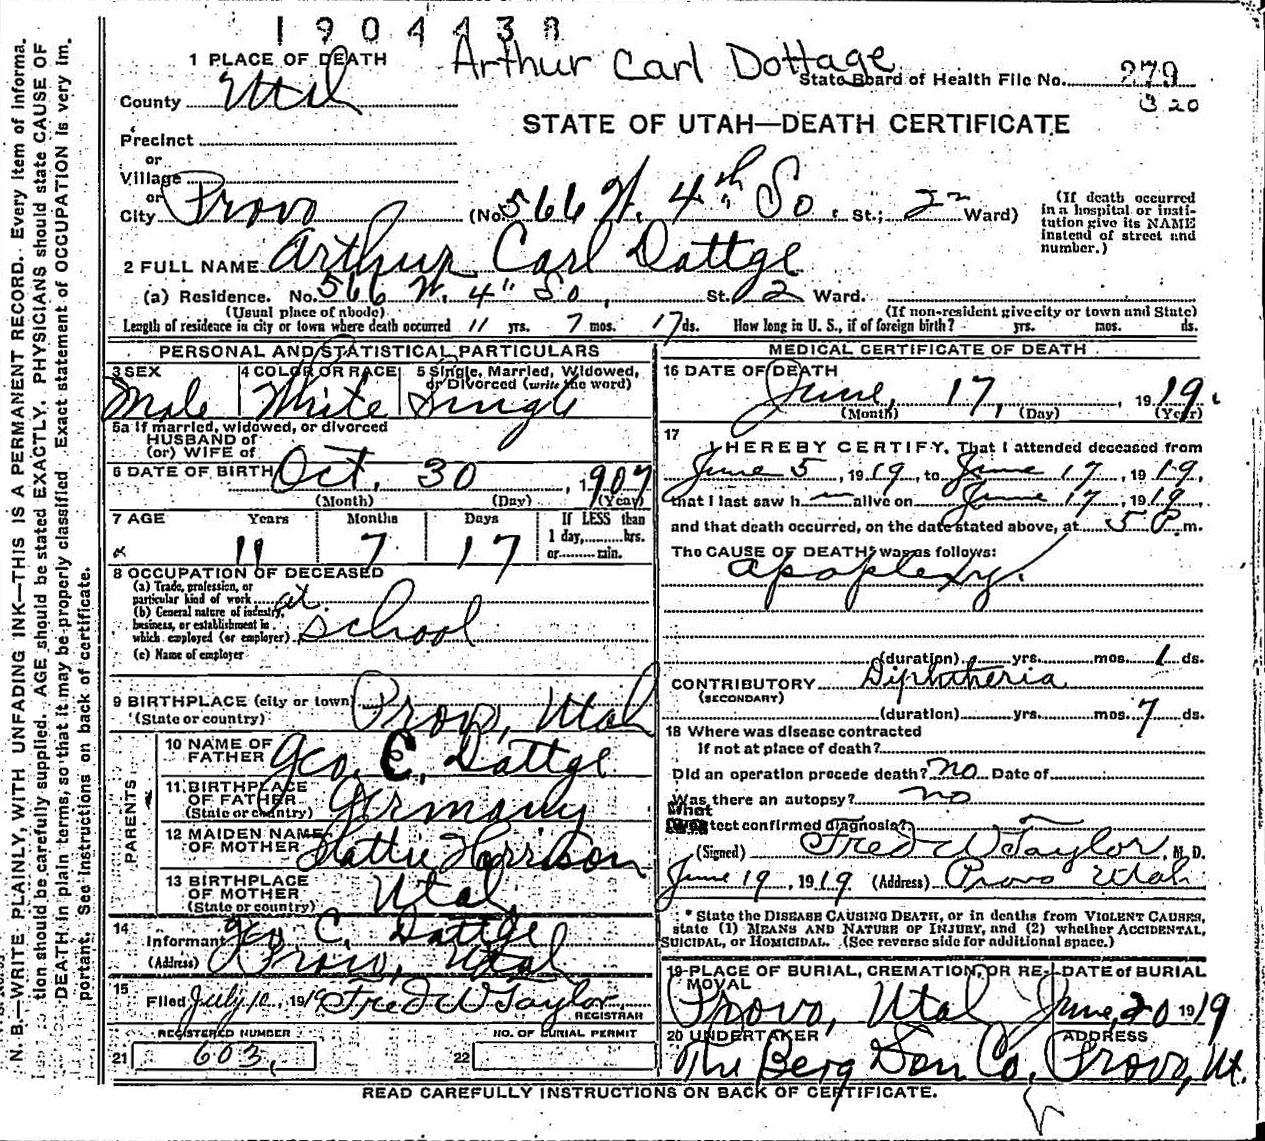 1904438
Arthur Carl Dottage
1 PLACE OF DEATH
State Board of Health File No. 279
320
County Utah
STATE OF UTAH—DEATH CERTIFICATE
Precinct
or
Village
or
City Provo (No. 566 W. 4th So. St.; 2nd Ward) (If death occurred in a hospital or institution give its NAME instead of street and number.)
2 FULL NAME Arthur Carl Dattge
(a) Residence. No. 566 W. 4" So, St. 2 Ward.
(Usual place of abode) (If non-resident give city or town and State)
Length of residence in city or town where death occurred 11 yrs. 7 mos. 17 ds. How long in U. S., if of foreign birth? yrs. mos. ds.
PERSONAL AND STATISTICAL PARTICULARS
3 SEX
Male
4 COLOR OR RACE
White
5 Single, Married, Widowed,
or Divorced (write the word)
Single
5a If married, widowed, or divorced
HUSBAND of
(or) WIFE of
6 DATE OF BIRTH Oct. 30, 1907
(Month) (Day) (Year)
7 AGE Years Months Days If LESS than
1 day,......hrs.
or......min.
11 7 17
8 OCCUPATION OF DECEASED
(a) Trade, profession, or
particular kind of work at
(b) General nature of industry,
business, or establishment in
which employed (or employer) school
(c) Name of employer
9 BIRTHPLACE (city or town) Provo, Utah
(State or country)
PARENTS
10 NAME OF
FATHER Geo. C. Dattge
11 BIRTHPLACE
OF FATHER
(State or country) Germany
12 MAIDEN NAME
OF MOTHER Hattie Harrison
13 BIRTHPLACE
OF MOTHER
(State or country) Utah
14
Informant Geo C. Dattge
(Address) Provo, Utah
15
Filed July 10, 1919 Fred W Taylor
REGISTRAR
REGISTERED NUMBER NO. OF BURIAL PERMIT
21 603, 22
MEDICAL CERTIFICATE OF DEATH
16 DATE OF DEATH
June, 17, 1919.
(Month) (Day) (Year)
17
I HEREBY CERTIFY, That I attended deceased from
June 5, 1919, to June 17, 1919,
that I last saw h m alive on June 17, 1919,
and that death occurred, on the date stated above, at 5 P m.
The CAUSE OF DEATH* was as follows:
apoplexy.
(duration) yrs. mos. 1 ds.
CONTRIBUTORY Diphtheria
(SECONDARY)
(duration) yrs. mos. 7 ds.
18 Where was disease contracted
If not at place of death?
Did an operation precede death? no Date of
Was there an autopsy? no
What
test confirmed diagnosis?
(Signed) Fred W Taylor, M. D.
June 19, 1919 (Address) Provo Utah
* State the DISEASE CAUSING DEATH, or in deaths from VIOLENT CAUSES,
state (1) MEANS AND NATURE OF INJURY, and (2) whether ACCIDENTAL,
SUICIDAL, or HOMICIDAL. (See reverse side for additional space.)
19 PLACE OF BURIAL, CREMATION, OR RE-
MOVAL
Provo, Utah
DATE of BURIAL
June, 20 1919
20 UNDERTAKER
The Berg Son Co.
ADDRESS
Provo, Ut.
READ CAREFULLY INSTRUCTIONS ON BACK OF CERTIFICATE.
N. B.—WRITE PLAINLY, WITH UNFADING INK—THIS IS A PERMANENT RECORD. Every item of informa-
tion should be carefully supplied. AGE should be stated EXACTLY. PHYSICIANS should state CAUSE OF
DEATH in plain terms, so that it may be properly classified. Exact statement of OCCUPATION is very im-
portant. See instructions on back of certificate.